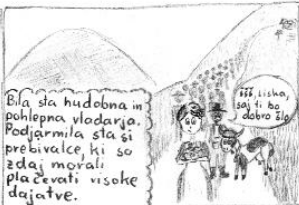 Bila sta hudobna in
pohlepna vladarja.
Podjarmila sta si
prebivalce, ki so
zdaj morali
plačevati visoke
dajatve.
ššš, Liska,
saj ti bo
dobro šlo